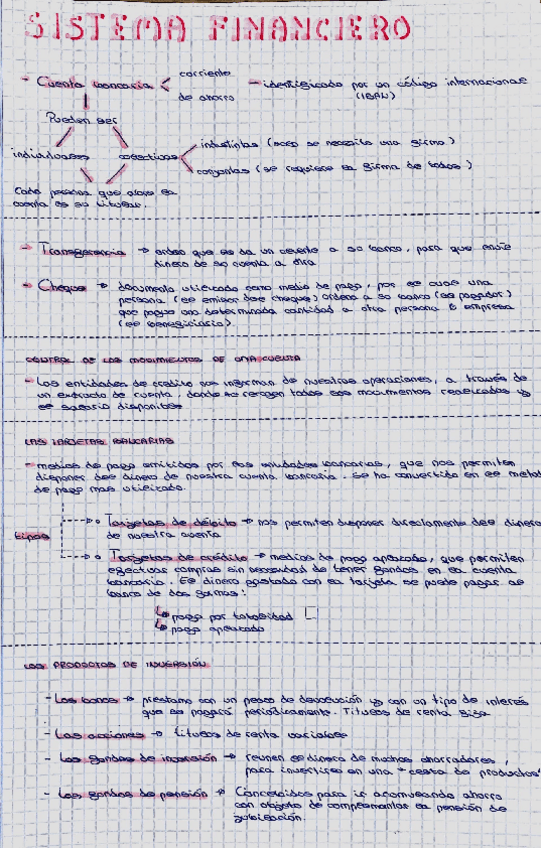 SISTEMA FINANCIERO
- Cuenta bancaria
corriente
de ahorro
- identificado por un código internacional
(IBAN)
Pueden ser
individuales
colectivas
indistintas (solo se necesita una firma)
conjuntas (se requiere la firma de todos)
Cada persona que abre la
cuenta es su titular.
- Transferencia → orden que le da un cliente a su banco, para que envíe
dinero de su cuenta a otra
- Cheque → documento utilizado como medio de pago, por el cual una
persona (el emisor del cheque) ordena a su banco (el pagador)
que pague una determinada cantidad a otra persona o empresa
(el beneficiario)
CONTROL DE LOS MOVIMIENTOS DE UNA CUENTA
- Las entidades de crédito nos informan de nuestras operaciones, a través de
un extracto de cuenta, donde se recogen todos los movimientos realizados y
el saldo disponible
LAS TARJETAS BANCARIAS
- medios de pago emitidos por las entidades bancarias, que nos permiten
disponer del dinero de nuestra cuenta bancaria. Se ha convertido en el metodo
de pago mas utilizado.
tipos
Tarjetas de débito → nos permiten disponer directamente del dinero
de nuestra cuenta
Tarjetas de crédito → medios de pago aplazado, que permiten
efectuar compras sin necesidad de tener fondos en la cuenta
bancaria. El dinero gastado con la tarjeta se puede pagar al
banco de dos formas:
↳ pago por totalidad
↳ pago aplazado
LOS PRODUCTOS DE INVERSIÓN
- Los bonos → prestamo con un plazo de devolución y con un tipo de interés
que se pagará periodicamente. Titulos de renta fija
- Las acciones → titulos de renta variable
- Los fondos de inversión → reunen el dinero de muchos ahorradores,
para invertirlo en una "cesta de productos"
- Los fondos de pensión → para ir acumulando ahorro
con objeto de complementar la pensión de
jubilación.